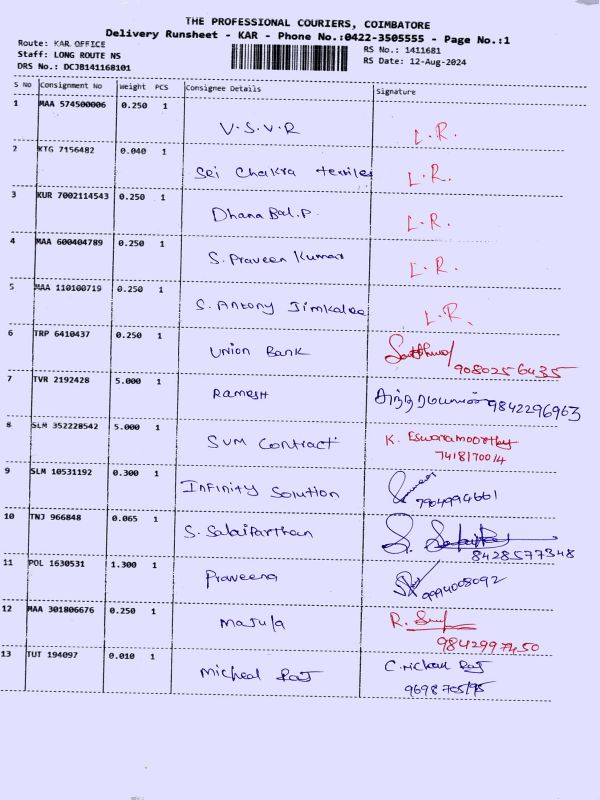 THE PROFESSIONAL COURIERS, COIMBATORE
Delivery Runsheet - KAR - Phone No.:0422-3505555 - Page No.:1
Route: KAR OFFICE
Staff: LONG ROUTE NS
DRS No.: DCJB141168101
RS No.: 1411681
RS Date: 12-Aug-2024
S No Consignment No Weight PCS Consignee Details Signature
1 MAA 574500006 0.250 1
V.S.V.R L.R.
2 KTG 7156482 0.040 1
Sei Chakra textiles L.R.
3 KUR 7002114543 0.250 1
Dhana Bal.P. L.R.
4 MAA 600404789 0.250 1
S. Praveen Kumar L.R.
5 MAA 110100719 0.250 1
S. Antony L.R.
6 TRP 6410437 0.250 1
Union Bank
9080256435
7 TVR 2192428 5.000 1
Ramesh 9842296963
8 SLM 352228542 5.000 1
SVM Contract K. Eswaramoorthy
7418170014
9 SLM 10531192 0.300 1
Infinity Solution
7904994661
10 TNJ 966848 0.065 1
S. Salaiparthan S.
8428577348
11 POL 1630531 1.300 1
Praveena 9994008092
12 MAA 301806676 0.250 1
Majula R.
9842997450
13 TUT 194097 0.010 1
Micheal Raj C. Micheal Raj
9698705195